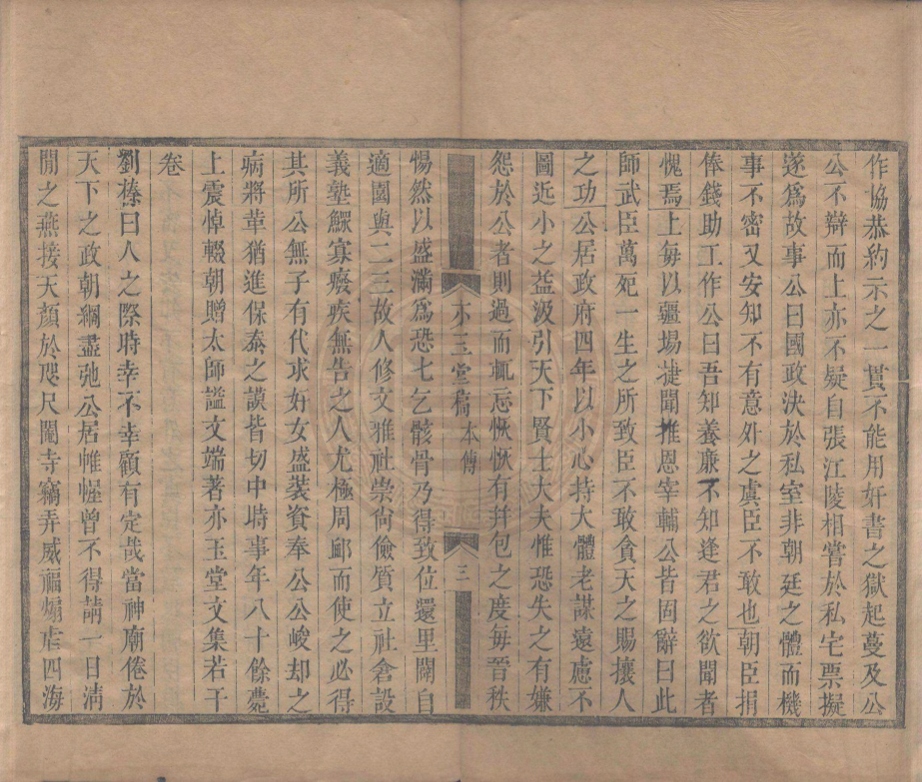 作協恭約示之一貫不能用奸書之獄起蔓及公
公不辯而上亦不疑自張江陵相嘗於私宅票擬
遂爲故事公曰國政決於私室非朝廷之體而機
事不密又安知不有意外之虞臣不敢也朝臣捐
俸錢助工作公曰吾知養廉不知逢君之欲聞者
愧焉上每以疆場捷聞推恩宰輔公皆固辭曰此
師武臣萬死一生之所致臣不敢貪天之賜攘人
之功公居政府四年以小心持大體老謀遠慮不
圖近小之益汲引天下賢士大夫惟恐失之有嫌
怨於公者則過而輒忘恢恢有幷包之度每晉秩
亦玉堂稿 本傳 三
惕然以盛滿爲恐七乞骸骨乃得致位還里闢自
適園與二三故人修文雅社崇尚儉質立社倉設
義塾鰥寡癈疾無告之人尤極周卹而使之必得
其所公無子有代求好女盛裝資奉公公峻却之
病將革猶進保泰之謨皆切中時事年八十餘薨
上震悼輟朝贈太師諡文端著亦玉堂文集若干
卷
劉榛曰人之際時幸不幸顧有定哉當神廟倦於
天下之政朝綱盡弛公居帷幄曾不得請一日淸
閒之燕接天顏於咫尺閹寺竊弄威福煽虐四海